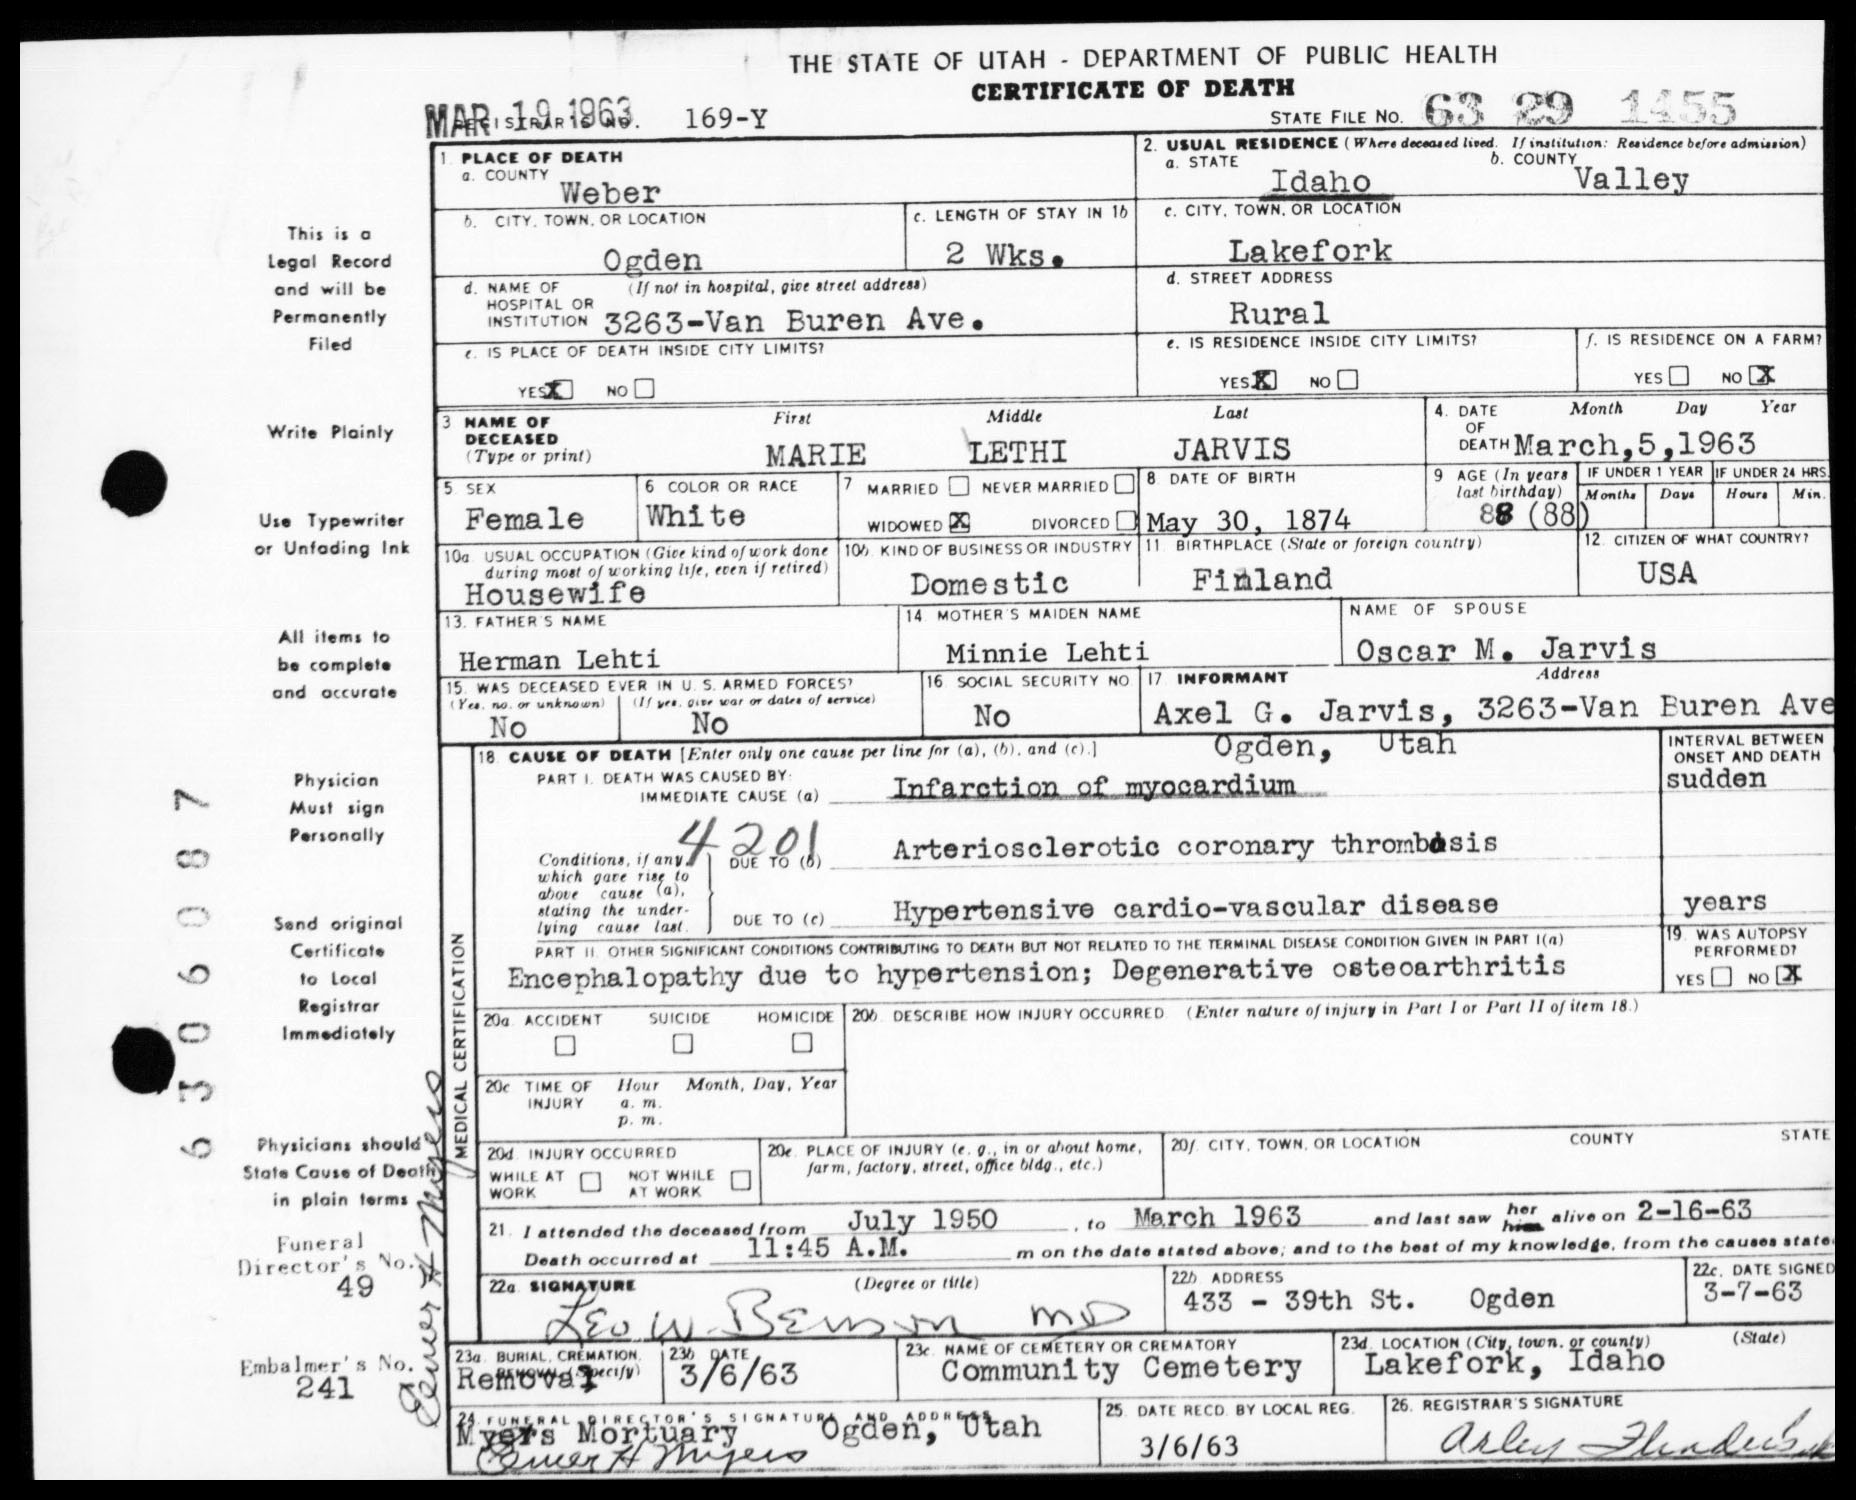 THE STATE OF UTAH - DEPARTMENT OF PUBLIC HEALTH
CERTIFICATE OF DEATH
MAR 19 1963
REGISTRAR'S NO. 169-Y
STATE FILE NO. 63 29 1455
1. PLACE OF DEATH
a. COUNTY
Weber
2. USUAL RESIDENCE (Where deceased lived. If institution: Residence before admission)
a. STATE
Idaho
b. COUNTY
Valley
b. CITY, TOWN, OR LOCATION
Ogden
c. LENGTH OF STAY IN 1b
2 Wks.
c. CITY, TOWN, OR LOCATION
Lakefork
d. NAME OF HOSPITAL OR INSTITUTION
(If not in hospital, give street address)
3263-Van Buren Ave.
d. STREET ADDRESS
Rural
e. IS PLACE OF DEATH INSIDE CITY LIMITS?
YES X NO
e. IS RESIDENCE INSIDE CITY LIMITS?
YES X NO
f. IS RESIDENCE ON A FARM?
YES NO X
3 NAME OF DECEASED
(Type or print)
First Middle Last
MARIE LETHI JARVIS
4. DATE OF DEATH
Month Day Year
March,5,1963
5 SEX
Female
6 COLOR OR RACE
White
7 MARRIED NEVER MARRIED
WIDOWED X DIVORCED
8 DATE OF BIRTH
May 30, 1874
9 AGE (In years last birthday)
88 (88)
IF UNDER 1 YEAR
Months Days
IF UNDER 24 HRS.
Hours Min.
10a. USUAL OCCUPATION (Give kind of work done
during most of working life, even if retired)
Housewife
10b. KIND OF BUSINESS OR INDUSTRY
Domestic
11. BIRTHPLACE (State or foreign country)
Finland
12. CITIZEN OF WHAT COUNTRY?
USA
13. FATHER'S NAME
Herman Lehti
14. MOTHER'S MAIDEN NAME
Minnie Lehti
NAME OF SPOUSE
Oscar M. Jarvis
15. WAS DECEASED EVER IN U. S. ARMED FORCES?
(Yes, no, or unknown) (If yes, give war or dates of service)
No No
16. SOCIAL SECURITY NO.
No
17. INFORMANT Address
Axel G. Jarvis, 3263-Van Buren Ave
Ogden, Utah
MEDICAL CERTIFICATION
18. CAUSE OF DEATH [Enter only one cause per line for (a), (b), and (c).]
INTERVAL BETWEEN
ONSET AND DEATH
PART I. DEATH WAS CAUSED BY:
IMMEDIATE CAUSE (a) Infarction of myocardium
sudden
4201
Conditions, if any,
which gave rise to
above cause (a),
stating the under-
lying cause last.
DUE TO (b) Arteriosclerotic coronary thrombosis
DUE TO (c) Hypertensive cardio-vascular disease
years
PART II. OTHER SIGNIFICANT CONDITIONS CONTRIBUTING TO DEATH BUT NOT RELATED TO THE TERMINAL DISEASE CONDITION GIVEN IN PART I(a)
Encephalopathy due to hypertension; Degenerative osteoarthritis
19. WAS AUTOPSY
PERFORMED?
YES NO X
20a. ACCIDENT SUICIDE HOMICIDE
20b. DESCRIBE HOW INJURY OCCURRED (Enter nature of injury in Part I or Part II of item 18.)
20c. TIME OF INJURY
Hour Month, Day, Year
a. m.
p. m.
20d. INJURY OCCURRED
WHILE AT WORK NOT WHILE AT WORK
20e. PLACE OF INJURY (e. g., in or about home,
farm, factory, street, office bldg., etc.)
20f. CITY, TOWN, OR LOCATION COUNTY STATE
21. I attended the deceased from July 1950, to March 1963 and last saw her him alive on 2-16-63
Death occurred at 11:45 A.M. m on the date stated above; and to the best of my knowledge, from the causes state
22a. SIGNATURE (Degree or title)
Leo W. Benson MD
22b. ADDRESS
433 - 39th St. Ogden
22c. DATE SIGNED
3-7-63
23a. BURIAL, CREMATION,
REMOVAL (Specify)
Removal
23b. DATE
3/6/63
23c. NAME OF CEMETERY OR CREMATORY
Community Cemetery
23d. LOCATION (City, town, or county) (State)
Lakefork, Idaho
24. FUNERAL DIRECTOR'S SIGNATURE AND ADDRESS
Myers Mortuary Ogden, Utah
Elmer H Myers
25. DATE RECD. BY LOCAL REG.
3/6/63
26. REGISTRAR'S SIGNATURE
Arley
This is a
Legal Record
and will be
Permanently
Filed
Write Plainly
Use Typewriter
or Unfading Ink
All items to
be complete
and accurate
Physician
Must sign
Personally
Send original
Certificate
to Local
Registrar
Immediately
Physicians should
State Cause of Death
in plain terms
Funeral
Director's No.
49
Embalmer's No.
241
Elmer H Myers
6306087